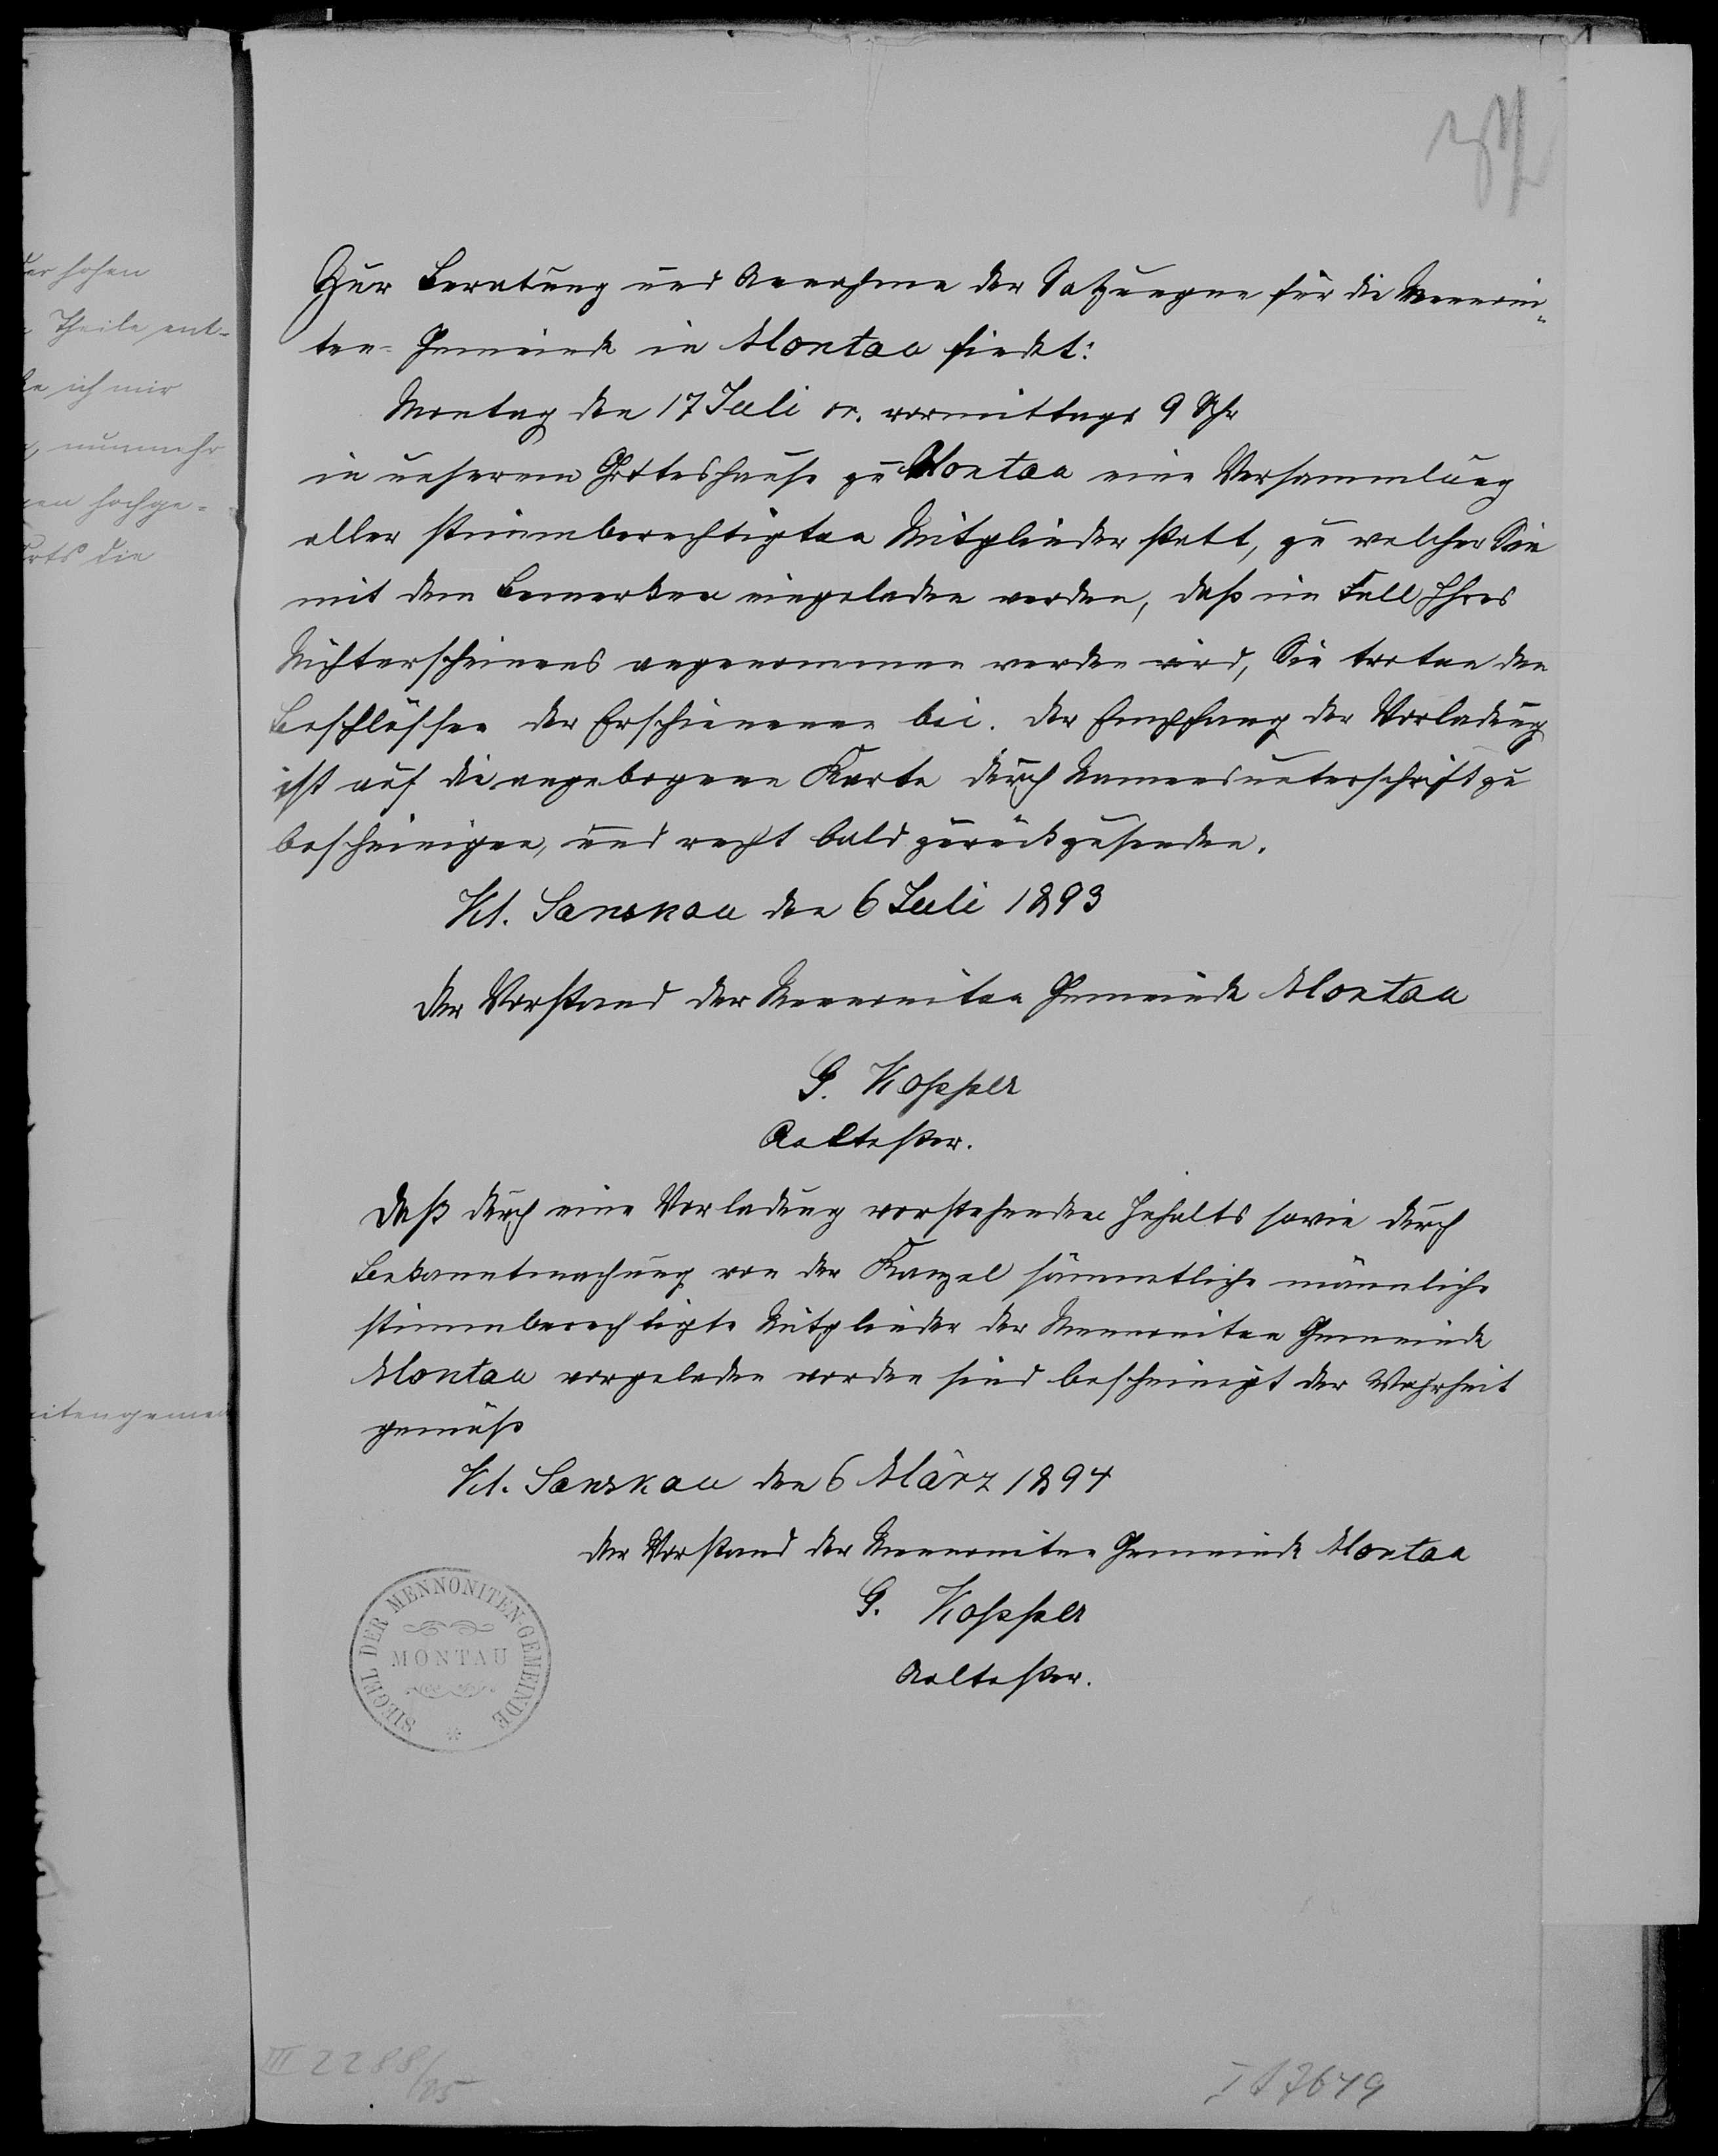 Zur Beratung und Annahme der Satzungen für die Mennoni-
ten-Gemeinde in Montau findet:
Montag den 17 Juli cr. vormittags 9 Uhr
in unserem Gotteshause zu Montau eine Versammlung
aller stimmberechtigten Mitglieder statt, zu welcher Sie
mit dem Bemerken eingeladen werden, daß im Fall Ihres
Nichterscheinens angenommen werden wird, Sie treten den
Beschlüssen der Erschienenen bei. Der Empfang der Vorladung
ist auf die angebogene Karte durch Namensunterschrift zu
bescheinigen, und recht bald zurückzusenden.
Kl. Sanskau den 6 Juli 1893
Der Vorstand der Mennoniten Gemeinde Montau
G. Kopper
Aeltester.
Daß durch eine Vorladung vorstehenden Inhalts sowie durch
Bekanntmachung von der Kanzel sämmtliche männliche
stimmberechtigte Mitglieder der Mennoniten Gemeinde
Montau vorgeladen worden sind bescheinigt der Wahrheit
gemäß
Kl. Sanskau den 6 März 1894
Der Vorstand der Mennoniten Gemeinde Montau
G. Kopper
Aeltester.
SIEGEL DER MENNONITEN-GEMEINDE
MONTAU
III 2288/05
der hohen
Theile ent-
ich mir
nunmehr
hochge-
die